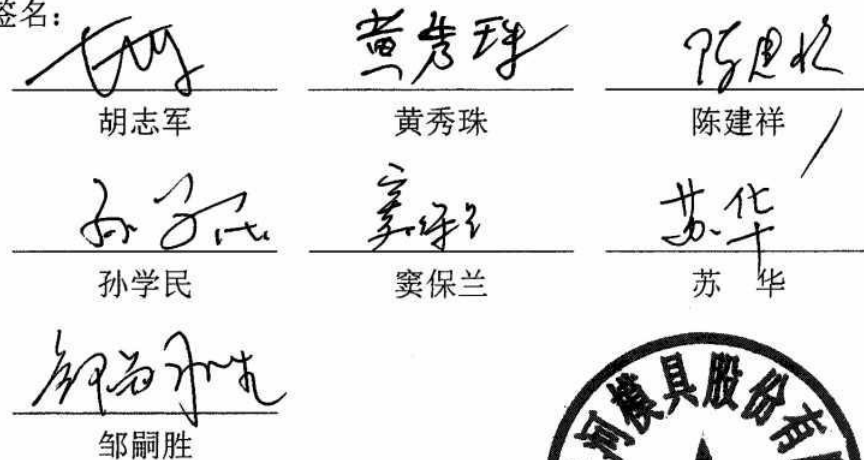 签名:
胡志军 黄秀珠 陈建祥
孙学民 窦保兰 苏 华
邹嗣胜
河模具股份有